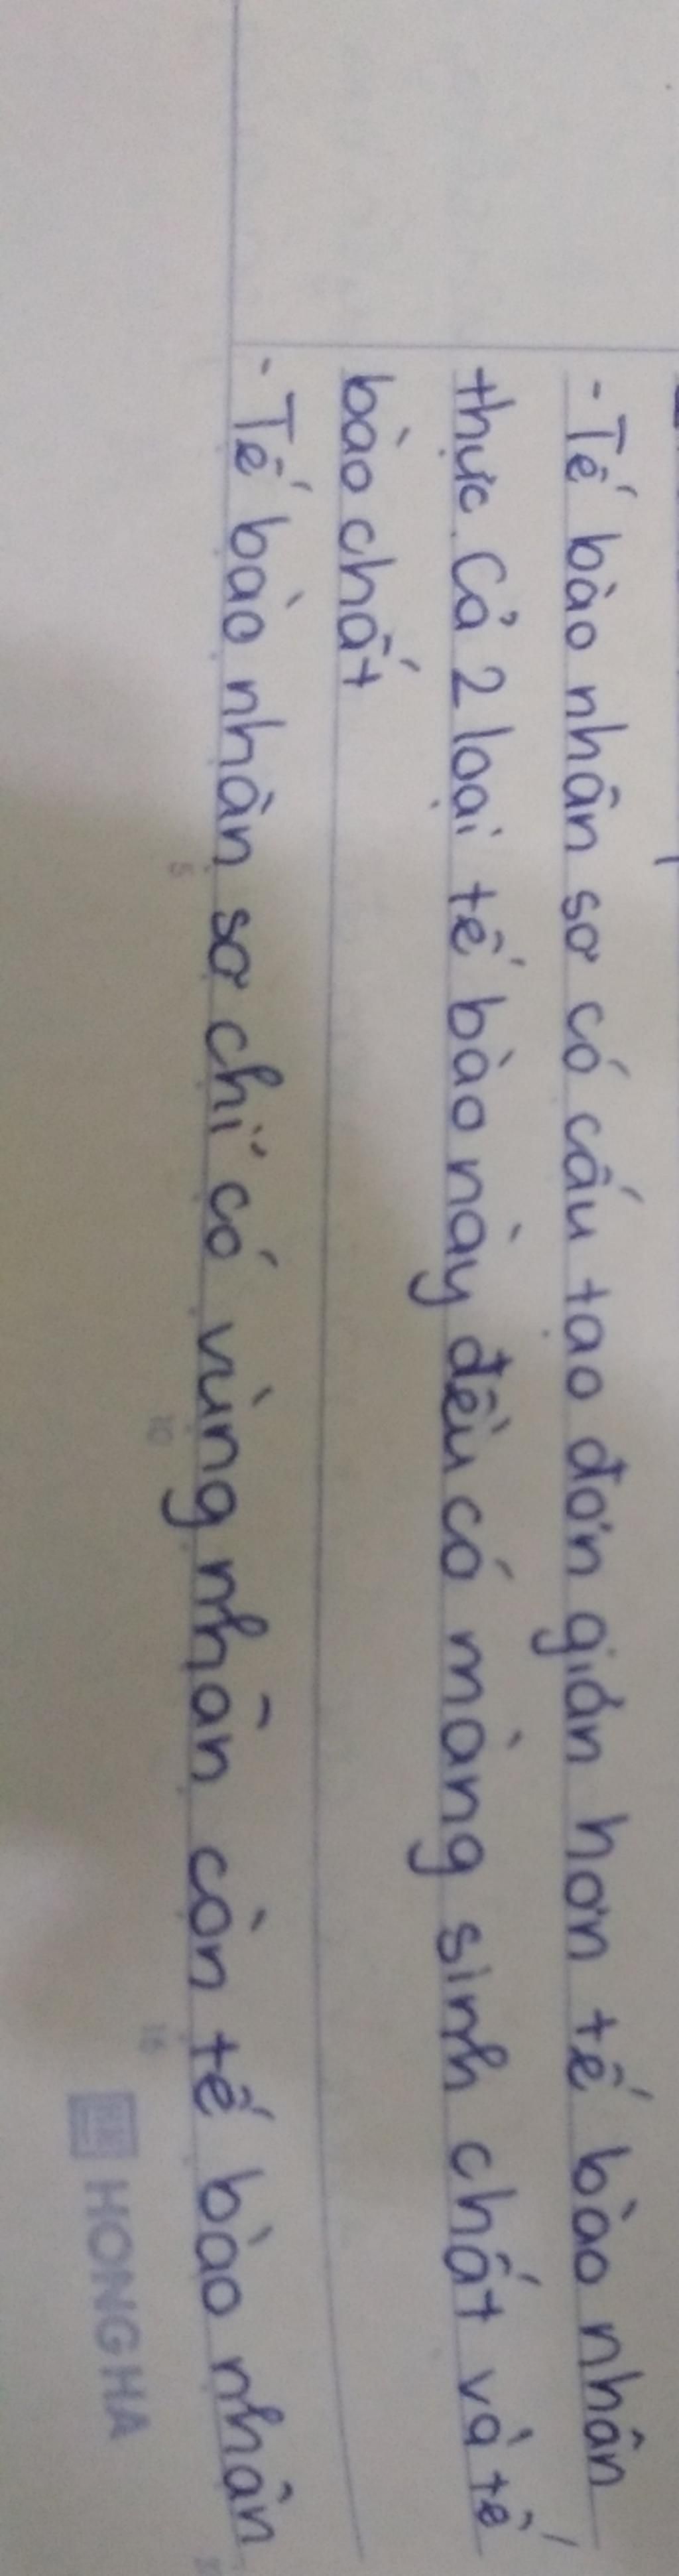 - Tế bào nhân sơ có cấu tạo đơn giản hơn tế bào nhân
thực. Cả 2 loại tế bào này đều có màng sinh chất và tế
bào chất
- Tế bào nhân sơ chỉ có vùng nhân còn tế bào nhân
5 10 15
HONG HA